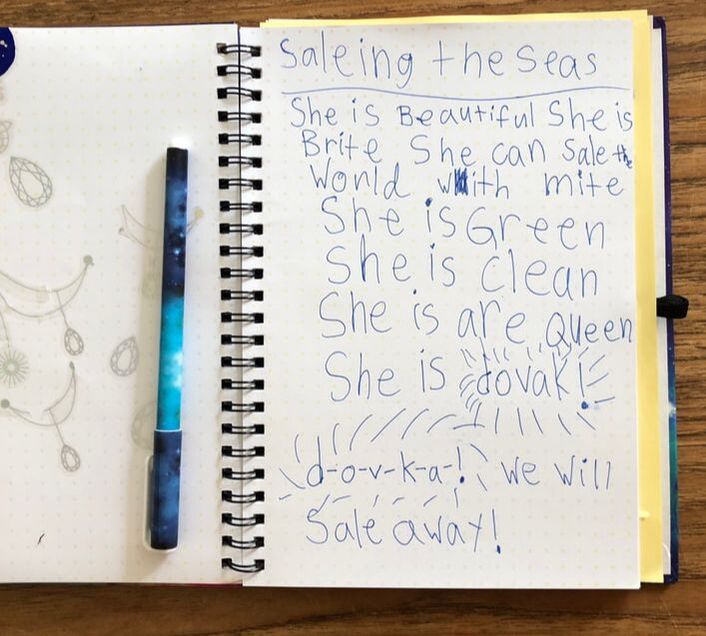 Saleing the Seas
She is Beautiful She is
Brite She can Sale the
World with mite
She is Green
She is clean
She is are Queen
She is dovak!
d-o-v-k-a-! We will
Sale away!